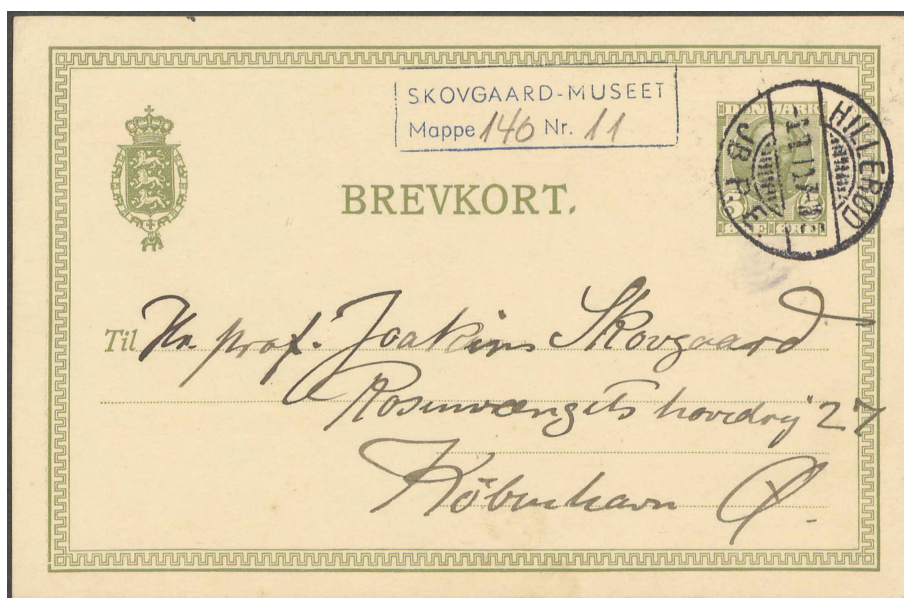 SKOVGAARD-MUSEET
Mappe 140 Nr. 11
DANMARK
HILLERØD
JB.P.E.
BREVKORT.
5 5
ØRE ØRE
Til Hr. prof. Joakim Skovgaard
Rosenvængets hovedvej 27
København Ø.